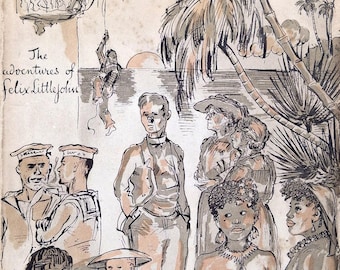 The
adventures of
Felix Littlejohn